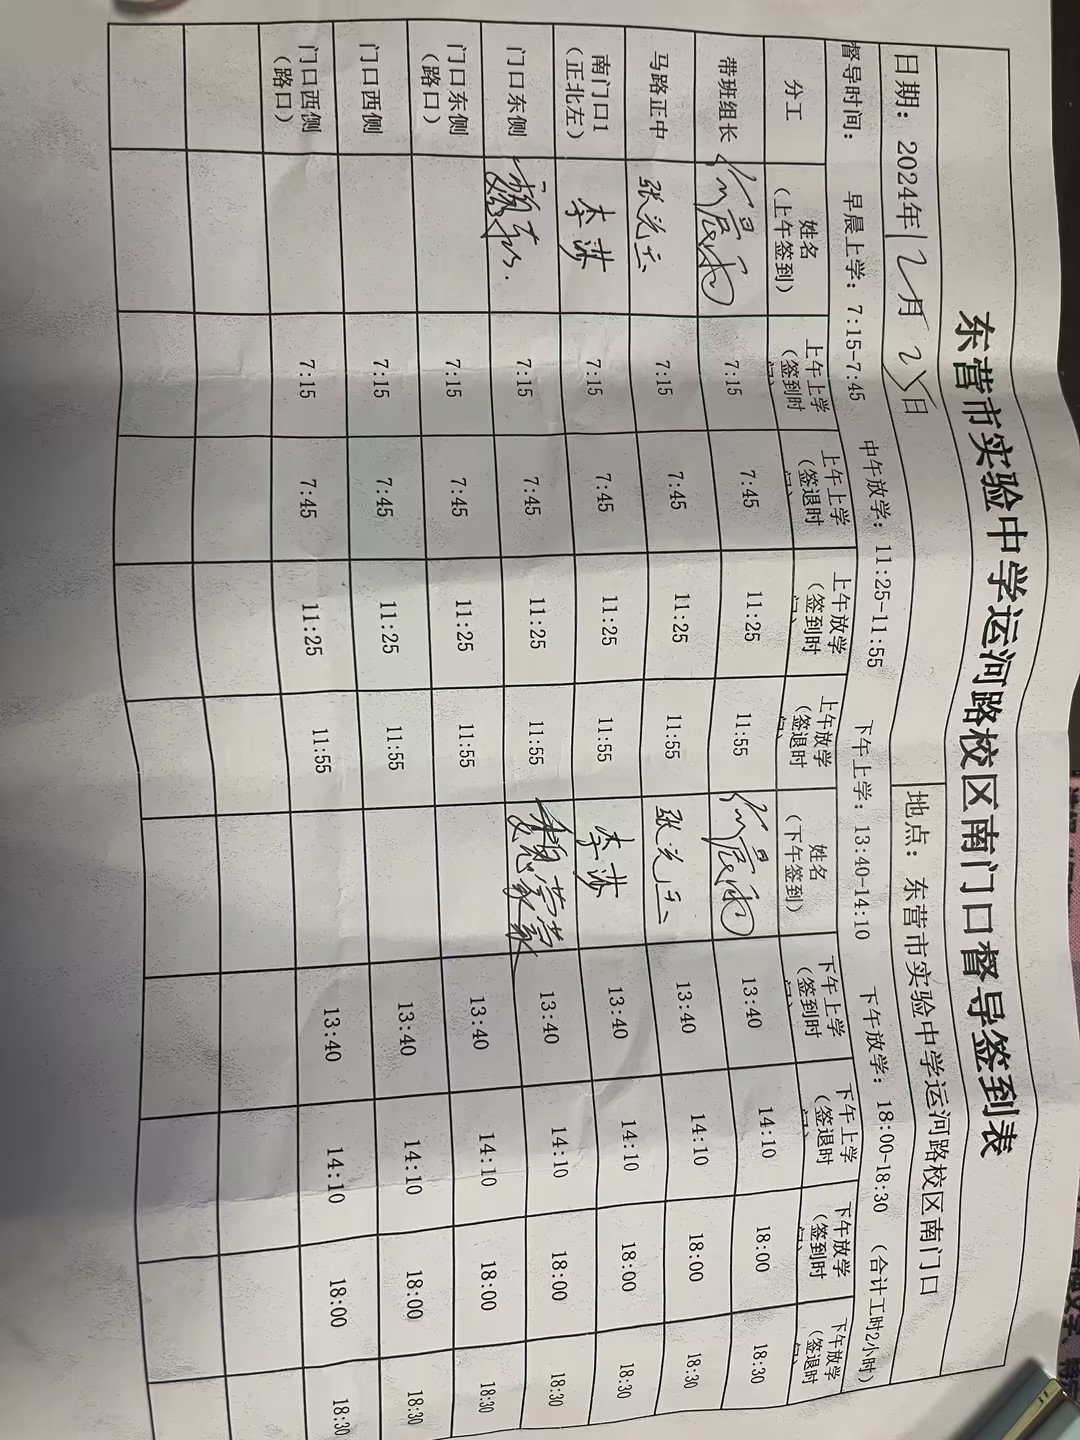 东营市实验中学运河路校区南门口督导签到表
日期：2024年12月25日 地点：东营市实验中学运河路校区南门口
督导时间： 早晨上学：7:15-7:45 中午放学：11:25-11:55 下午上学：13:40-14:10 下午放学：18:00-18:30 （合计工时2小时）
分工 姓名（上午签到） 上午上学（签到时间） 上午上学（签退时间） 上午放学（签到时间） 上午放学（签退时间） 姓名（下午签到） 下午上学（签到时间） 下午上学（签退时间） 下午放学（签到时间） 下午放学（签退时间）
带班组长 7:15 7:45 11:25 11:55 13:40 14:10 18:00 18:30
马路正中 张兰云 7:15 7:45 11:25 11:55 张兰云 13:40 14:10 18:00 18:30
南门口1（正北左） 李淋 7:15 7:45 11:25 11:55 李淋 13:40 14:10 18:00 18:30
门口东侧 7:15 7:45 11:25 11:55 13:40 14:10 18:00 18:30
门口东侧（路口） 7:15 7:45 11:25 11:55 13:40 14:10 18:00 18:30
门口西侧 7:15 7:45 11:25 11:55 13:40 14:10 18:00 18:30
门口西侧（路口） 7:15 7:45 11:25 11:55 13:40 14:10 18:00 18:30